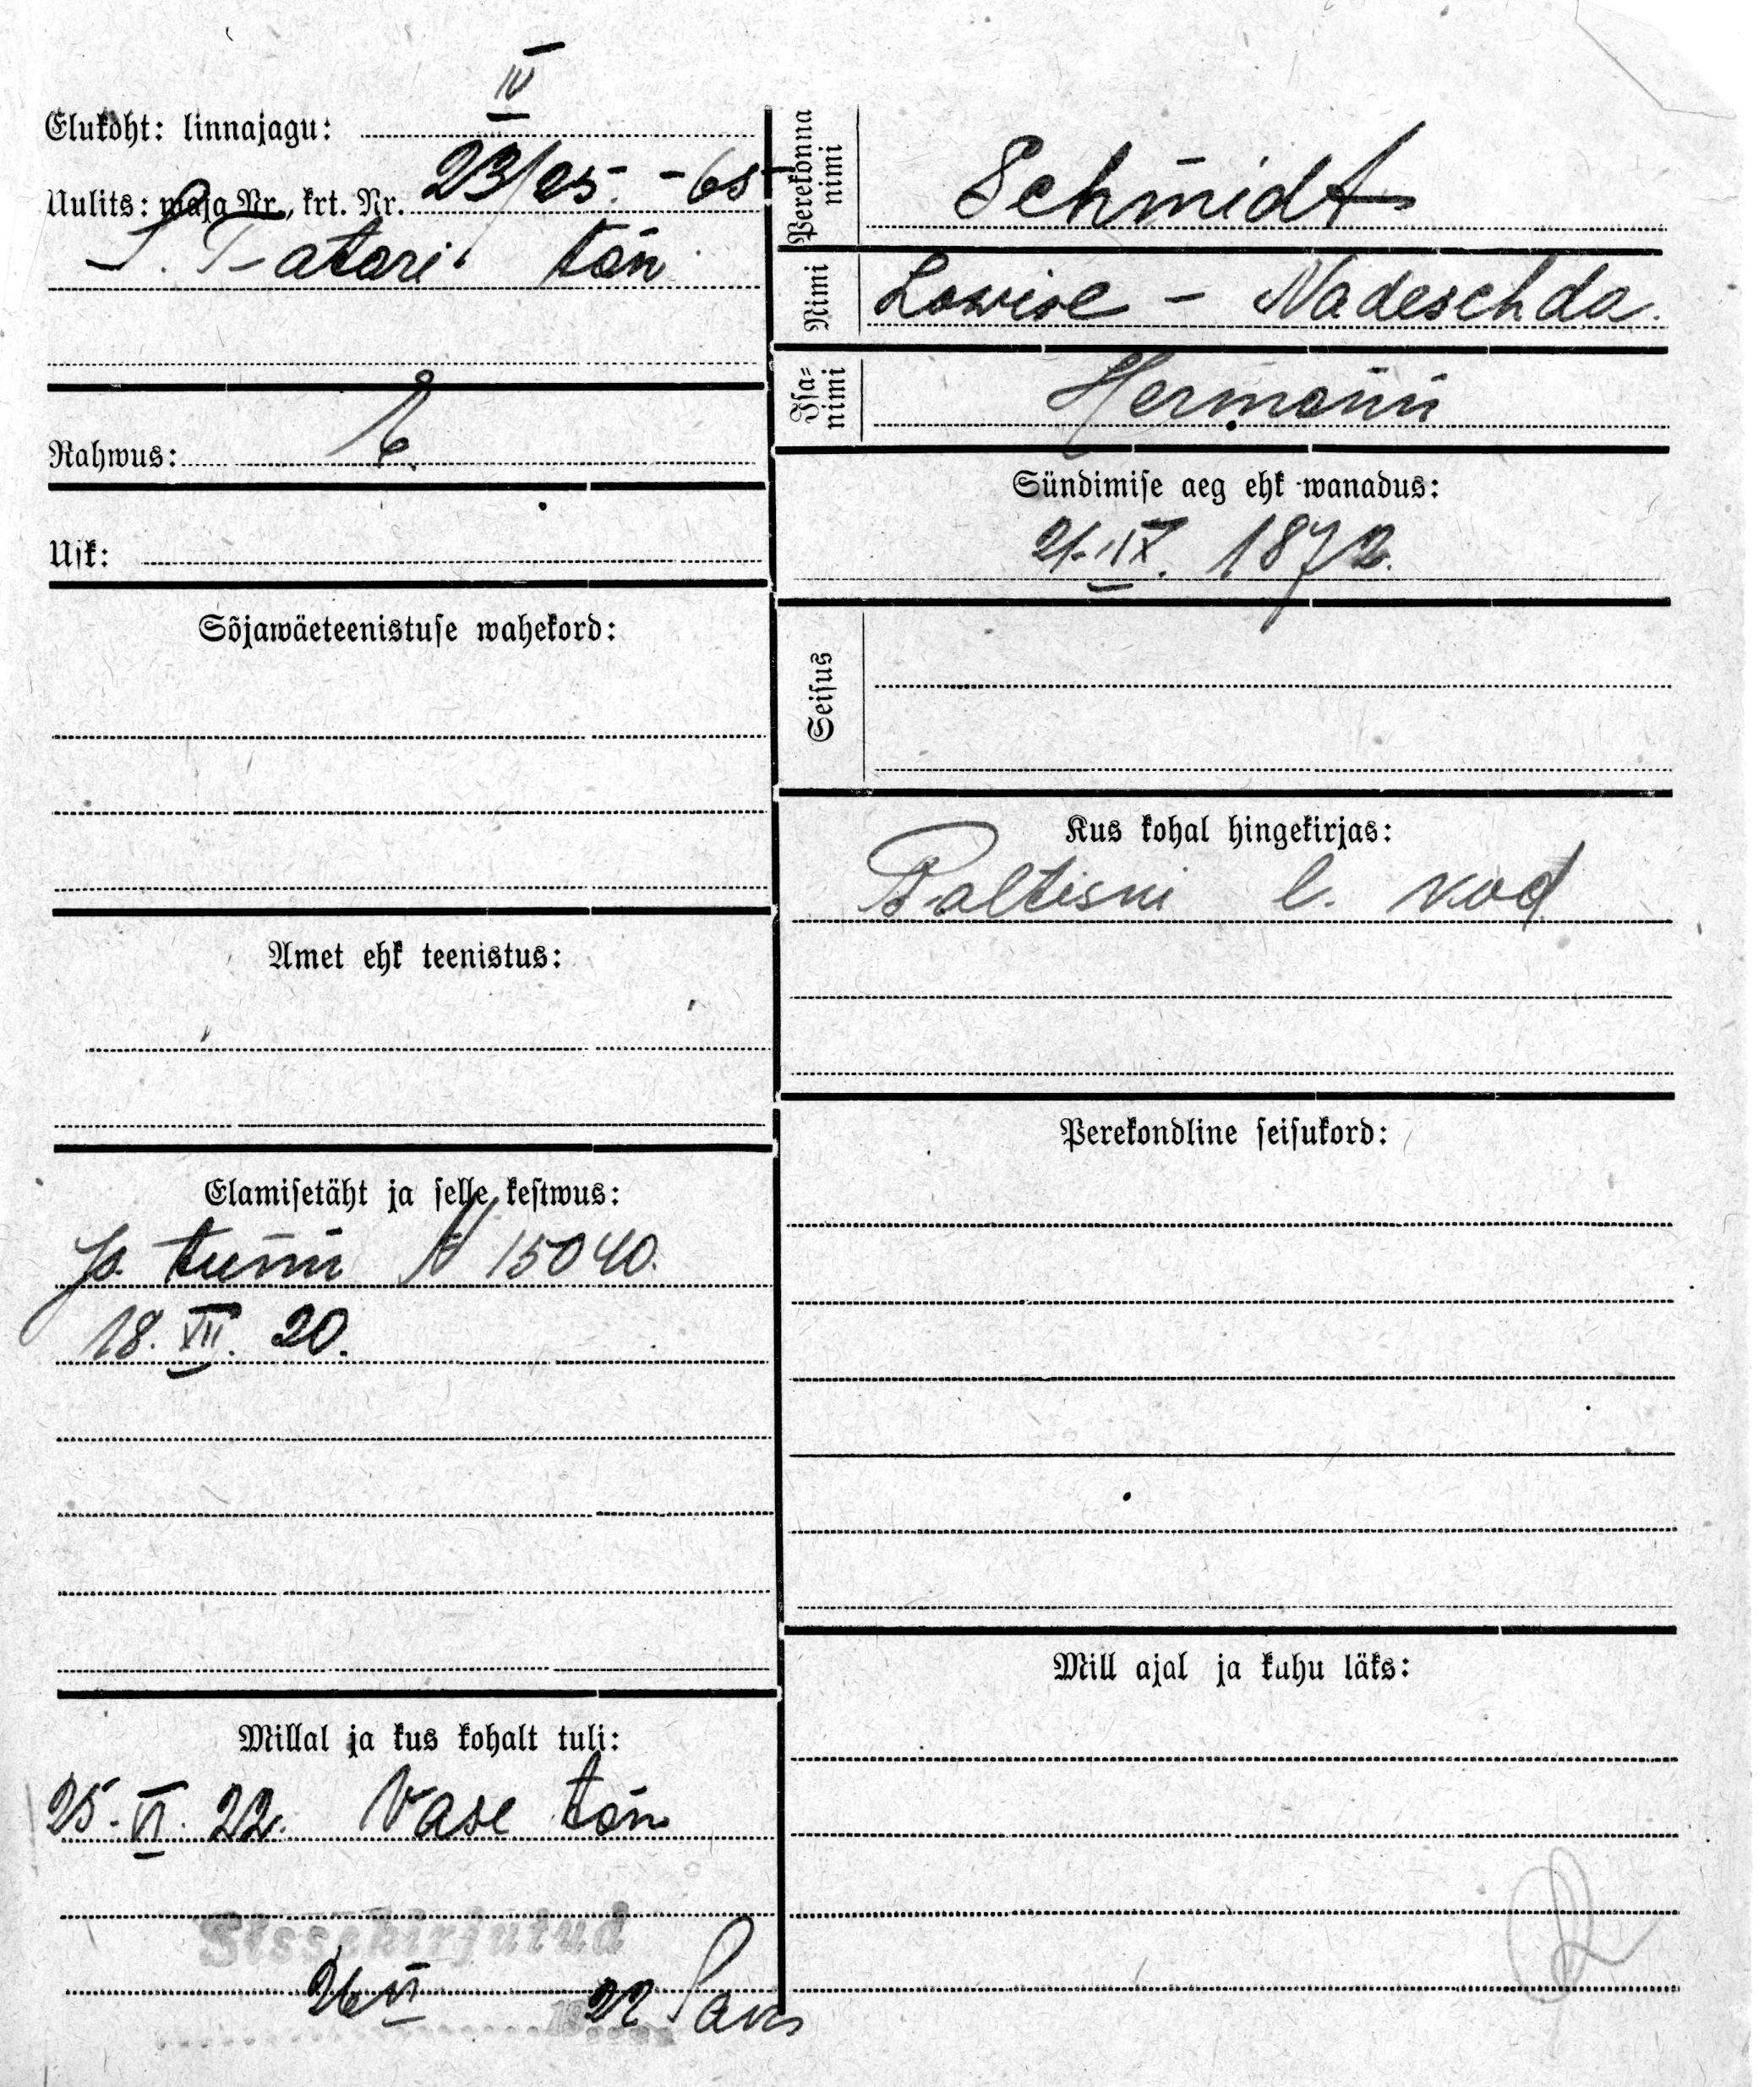 IV
Elukoht: linnajagu:
Uulits: maja Nr., krt. Nr. 23/25 - 65
S. Tatari tän
Rahwus: E.
Usk:
Sõjawäeteenistuse wahekord:
Amet ehk teenistus:
Elamisetäht ja selle kestwus:
Is. tunn № 15040.
18. XII. 20.
Millal ja kus kohalt tuli:
25. VI. 22. Vase tän
Sissekirjutud
26 VI 22
Perekonna nimi
Schmidt
Nimi
Lowise - Nadeschda.
Isa-nimi
Hermann
Sündimise aeg ehk wanadus:
21. IX. 1872.
Seisus
Kus kohal hingekirjas:
Paltisni l. kod
Perekondline seisukord:
Mill ajal ja kuhu läks: